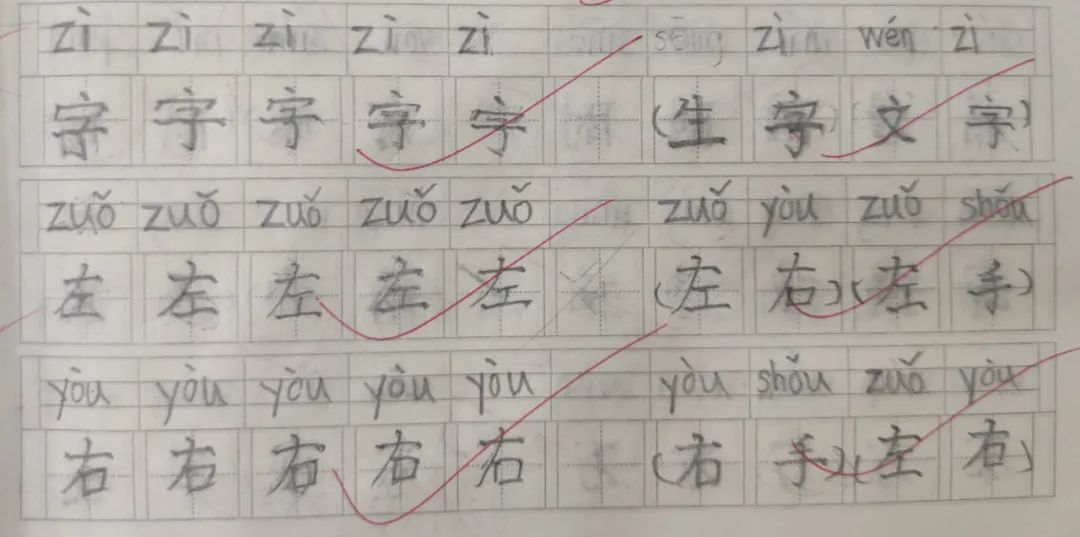 zì zì zì zì zì sēng zì wén zì
字 字 字 字 字 (生 字) (文 字)
zuǒ zuǒ zuǒ zuǒ zuǒ zuǒ yòu zuǒ shǒu
左 左 左 左 左 (左 右) (左 手)
yòu yòu yòu yòu yòu yòu shǒu zuǒ yòu
右 右 右 右 右 (右 手) (左 右)